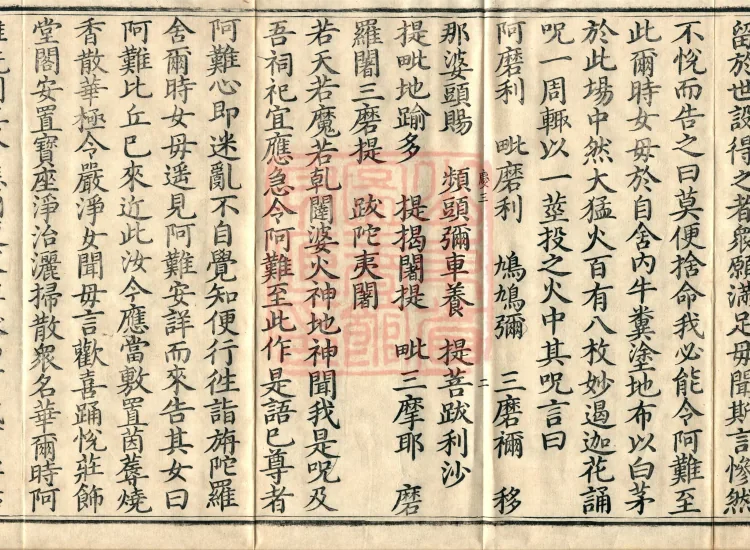 留於世設得之者衆願滿足母聞斯言慘然
不悅而告之曰莫便捨命我必能令阿難至
此爾時女母於自舍內牛糞塗地布以白茅
於此場中然大猛火百有八枚妙遏迦花誦
呪一周輙以一莖投之火中其呪言曰
阿磨利 毗磨利 鳩鳩彌 三磨禰 移
那婆頭賜 頻頭彌車養 提菩跋利沙
提毗地踰多 提揭闍提 毗三摩耶 磨
羅闍三磨提 跋陀夷闍
若天若魔若乹闥婆火神地神聞我是呪及
吾祠祀宜應急令阿難至此作是語已尊者
阿難心即迷亂不自覺知便行徃詣旃陀羅
舍爾時女母遥見阿難安詳而來告其女曰
阿難比丘已來近此汝今應當敷置茵蓐燒
香散華極令嚴淨女聞母言歡喜踊悅莊飾
堂閣安置寶座淨治灑掃散衆名華爾時阿